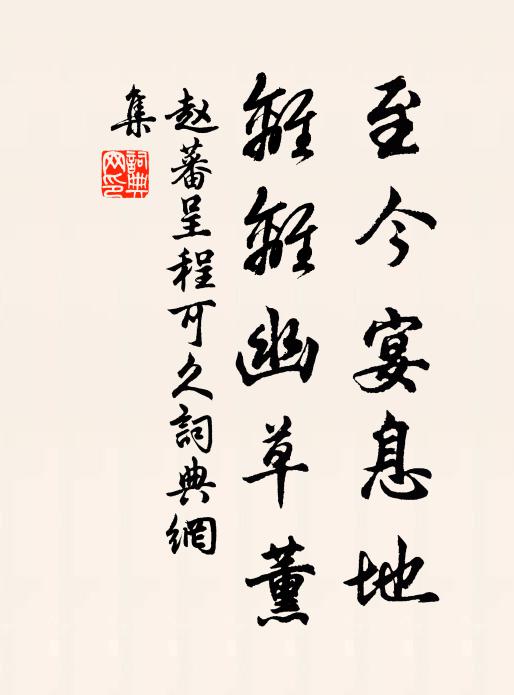 至今宴息地
離離幽草薰
赵蕃呈程可久詞典網
集
詞典
网印